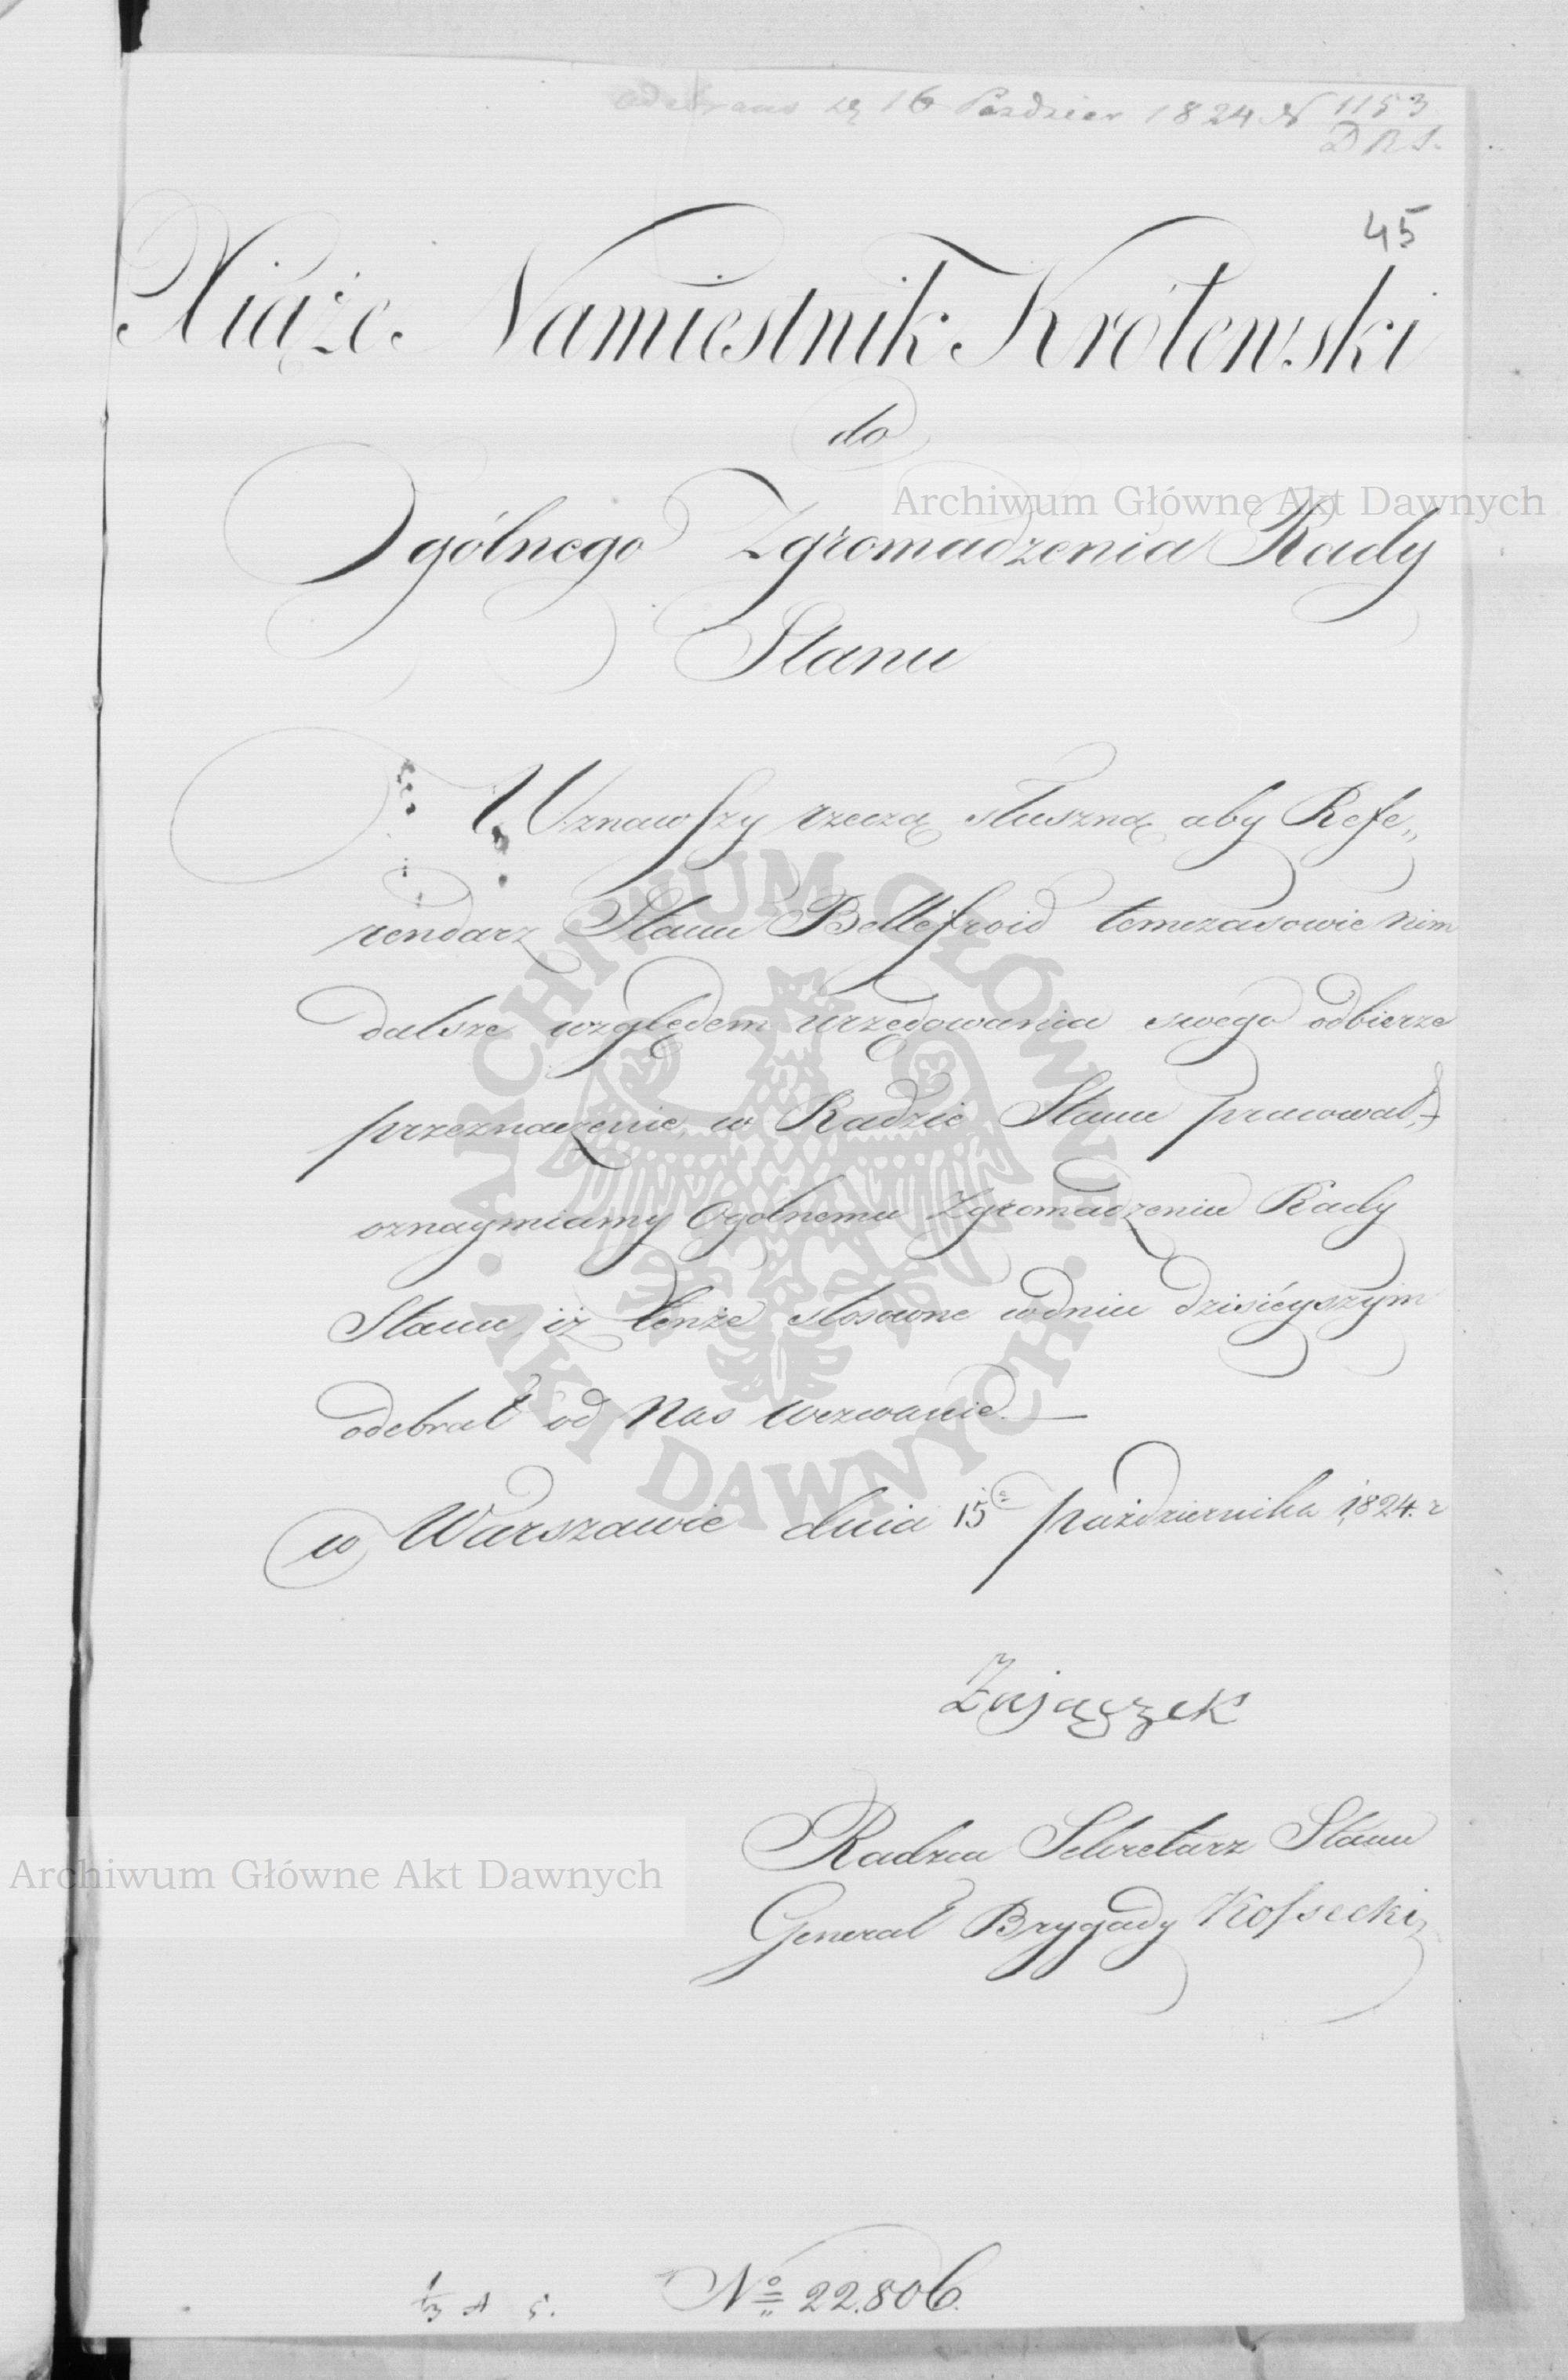 odebrano dn 16 Pazdzier 1824 N 1153
D R S.
45
Xiąże Namiestnik Królewski
do
Archiwum Główne Akt Dawnych
Ogólnego Zgromadzenia Rady
Stanu
Uznawszy rzeczą słuszną aby Refe„
rendarz Stanu Bellefroid temczasowie nim
dalsze względem urzędowania swego odbierze
przeznaczenie, w Radzie Stanu pracował,
oznaymiamy Ogólnemu Zgromadzeniu Rady
Stanu, iż tenże stosowne w dniu dzisieyszym
odebrał od Nas wezwanie.
w Warszawie dnia 15 października 1824. r
ARCHIWUM GŁÓWNE
AKT DAWNYCH
Zajączek
Radzca Sekretarz Stanu
Archiwum Główne Akt Dawnych
Generał Brygady Kossecki
No 22.806.